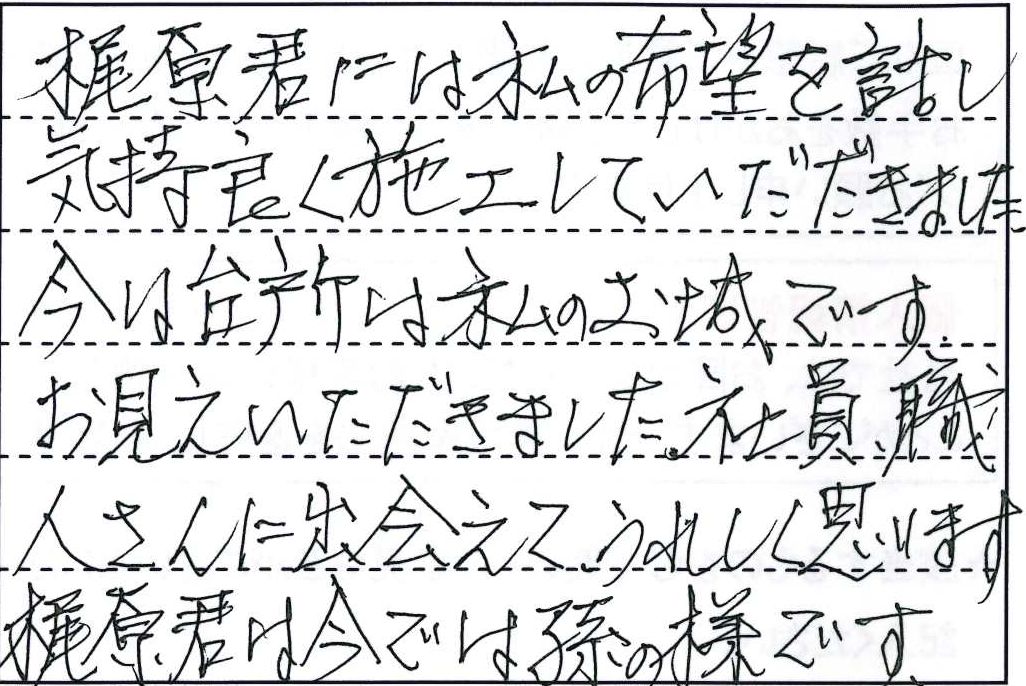 梶原君には私の希望を話し
気持良く施工していただきました
今は台所は私のお城です.
お見えいただきました.社員、職
人さんに出会えてうれしく思います
梶原君は今では孫の様です.